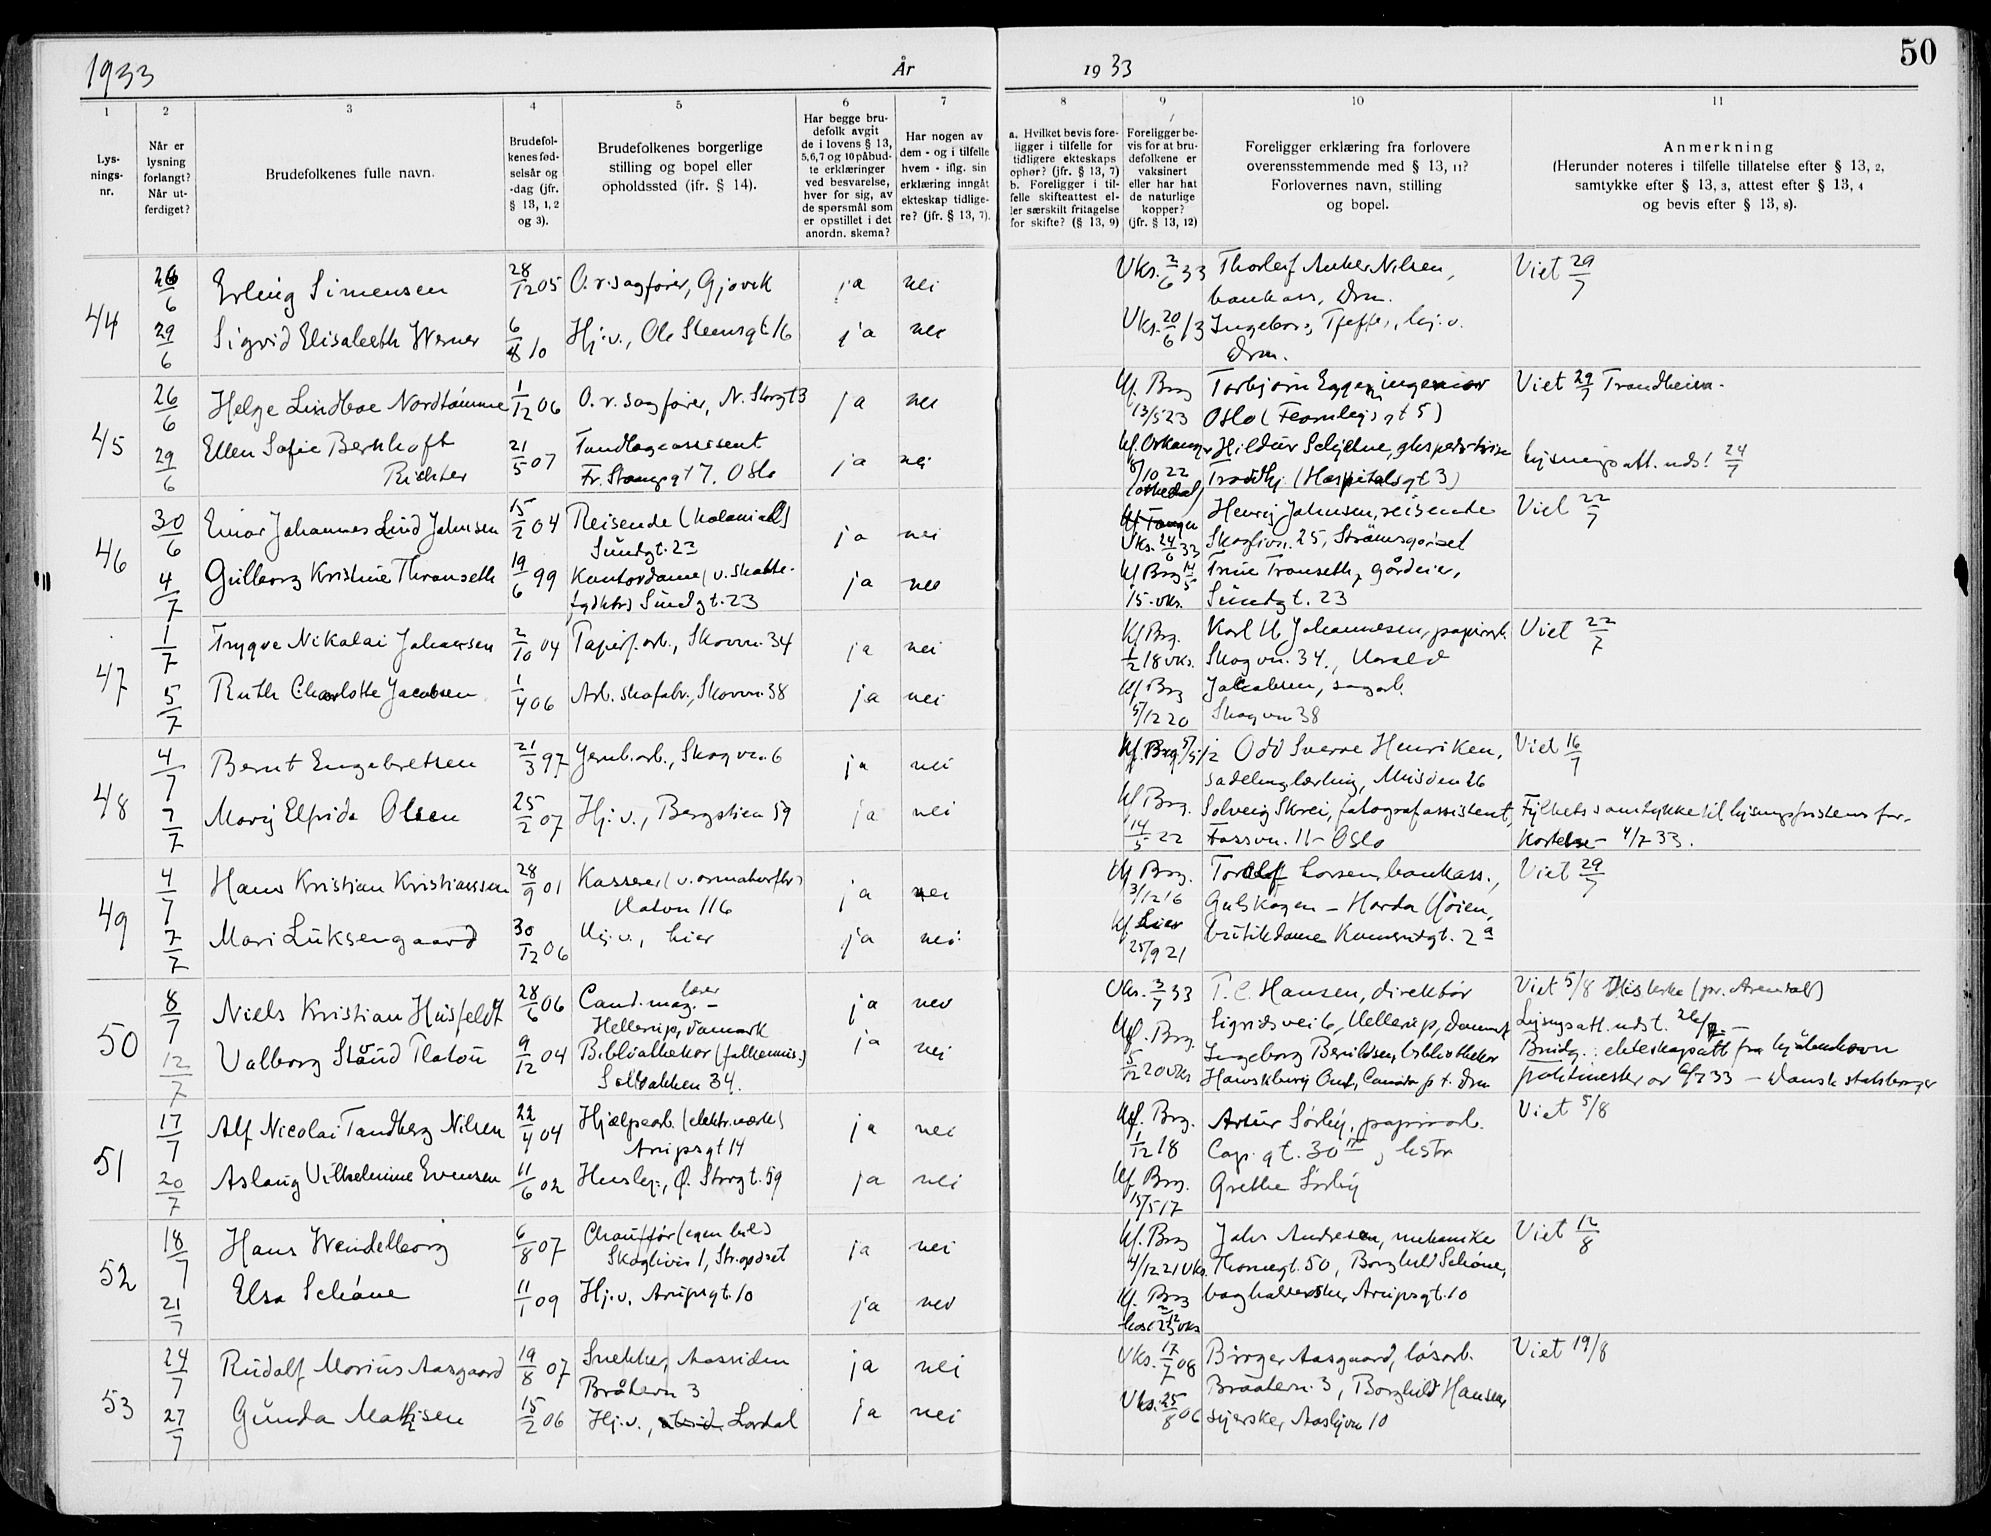 50
1933 År 1933
1 2 3 4 5 6 7 8 9 10 11
Lys-
nings-
nr.
Når er
lysning
forlangt?
Når ut-
ferdiget?
Brudefolkenes fulle navn.
Brudefol-
kenes fød-
selsår og
-dag (jfr.
§ 13, 1, 2
og 3).
Brudefolkenes borgerlige
stilling og bopel eller
opholdssted (jfr. § 14).
Har begge bru-
defolk avgit
de i lovens § 13,
5,6,7 og 10 påbud-
te erklæringer
ved besvarelse,
hver for sig, av
de spørsmål som
er opstillet i det
anordn. skema?
Har nogen av
dem - og i tilfelle
hvem - iflg. sin
erklæring inngått
ekteskap tidlige-
re? (jfr. § 13, 7).
a. Hvilket bevis fore-
ligger i tilfelle for
tidligere ekteskaps
ophør? (jfr. § 13, 7)
b. Foreligger i til-
felle skifteattest el-
ler særskilt fritagelse
for skifte? (§ 13, 9)
Foreligger be-
vis for at bru-
defolkene er
vaksinert
eller har hat
de naturlige
kopper?
(jfr. § 13, 12)
Foreligger erklæring fra forlovere
overensstemmende med § 13, 11?
Forlovernes navn, stilling
og bopel.
Anmerkning
(Herunder noteres i tilfelle tillatelse efter § 13, 2,
samtykke efter § 13, 3, attest efter § 13, 4
og bevis efter § 13, 8).
44 26/6 Erling Simensen 28/12 05 O.r.sagfører, Gjøvik ja nei Vks. 2/6 33 Thorleif Anker Nilsen,
bankass, Drm. Viet 29/7
29/6 Sigrid Elisabeth Werner 6/8 10 Hj.v., Ole Steensgt 16 ja nei Vks. 20/6 13 Ingeborg, hj.v.
Drm.
45 26/6 Helge Lindboe Nordtømme 1/12 06 O.r.sagfører, N. Storgt 3 ja nei Kf. Brg
13/5 23 Torbjørn Eggen, ingeniør
Oslo (Fearnleysgt 5) Viet 29/7 Trondheim.
29/6 Ellen Sofie Berkhoft
Richter 21/5 07 Tandlegeassistent
Fr. Stangsgt 7, Oslo ja nei Kf. Orkanger
8/10 22 Hildur Schjetne, ekspeditrise
Trondhj. (Hospitalsgt 3) Lysningsatt. uds! 24/7
46 30/6 Einar Johannes Lind Johnsen 15/2 04 Reisende (kolonial)
Sundgt. 23 ja nei Kf Tangen
Vks. 24/6 33 Henry Johnsen, reisende
Skoglivn. 25, Strømsgodset Viet 22/7
4/7 Gulborg Kristine Thranseth 19/6 99 Kontordame (v. skatte-
fgdktr) Sundgt. 23 ja nei Kf Brg 14/5
15. vks. Trine Transeth, gårdeier,
Sundgt. 23
47 1/7 Trygve Nikolai Johansen 2/10 04 Papirf.arb., Skovvn. 34 ja nei Kf Brg.
1/2 18 vks. Karl H. Johannesen, papirarb.
Skogvn. 34., Harald Viet 22/7
5/7 Ruth Charlotte Jacobsen 1/4 06 Arb. skofabr., Skovvn. 38 ja nei Kf Brg
5/12 20 Jakobsen, sagarb.
Skogvn 38
48 4/7 Bernt Engebretsen 21/3 97 Jernb.arb., Skogvn. 6 ja nei Kf. Brg 5/5 12 Odd Sverre Henriksen,
sadelmglærling, Muisøen 26 Viet 16/7
7/7 Mary Elfrida Olsen 25/2 07 Hj.v., Bergstien 59 ja nei Kf Brg.
14/5 22 Solveig Skrei, fotografassistent,
Fossvn. 11 - Oslo Fylkets samtykke til lysningsfristens for-
kortelse - 4/7 33.
49 4/7 Hans Kristian Kristiansen 28/9 01 Kasserer (v. armaturfbr)
Havn 116 ja nei Kf Brg.
3/12 16 Toralf Larsen, bankass.,
Gulskogen - Harda Høien, Viet 29/7
7/7 Mari Luksengaard 30/12 06 Hj.v., Lier ja nei Kf Lier
25/9 21 butikdame Konnerudgt. 2a
50 8/7 Niels Kristian Husfeldt 28/6 06 Cand. mag. - lærer
Hellerup, Danmark ja nei Vks. 3/7 33 P.C. Hansen, direktør
Sigridsvei 6, Hellerup, Danmark Viet 5/8 His kirke (pr. Arendal)
Lysngsatt. udst. 26/7 -
12/7 Valborg Platou 9/12 04 Bibliothekar (folkeminis.)
Solbakken 34. ja nei Kf. Brg.
5/12 20 vks Ingeborg Berildsen, bibliothekar
Canada p.t. Drm Brudg.: ekteskapsatt fra Kjøbenhavn
politimester av 6/7 33 - Dansk statsborger
51 17/7 Alf Nicolai Tandberg Nilsen 22/4 04 Hjælpearb. (elektr.værk)
Arupsgt 14 ja nei Kf. Brg.
1/12 18 Artur Sørby, papirarb.
Cap. gt. 30 Viet 5/8
20/7 Aslaug Vilhelmine Evensen 11/6 02 Husbey., Ø. Storgt. 59 ja nei Kf Brg.
15/5 17 Grethe Sørby
52 18/7 Hans Wendelborg 6/8 07 Chauffør (egen bil)
Skoglivn 1, Str.godset ja nei Kf. Brg
4/12 21 vks. John Andresen, mekaniker
Thornegt. 50, Borghild Schöne, Viet 12/8
21/7 Elsa Schöne 11/1 09 Hj.v. Arupsgt. 10 ja nei Kf. Brg
boghalterske, Arupsgt. 10
53 24/7 Rudolf Marius Aasgaard 19/8 07 Snekker, Aassiden
Bråtevn 3 ja nei Vks. 17/7 08 Birger Aasgaard, løsarb.
Braatevn. 3, Borghild Hansen Viet 19/8
27/7 Gunda Mathisen 15/2 06 Hj.v., Lardal ja nei Vks. 25/8 06 syerske, Aaslyvn 10